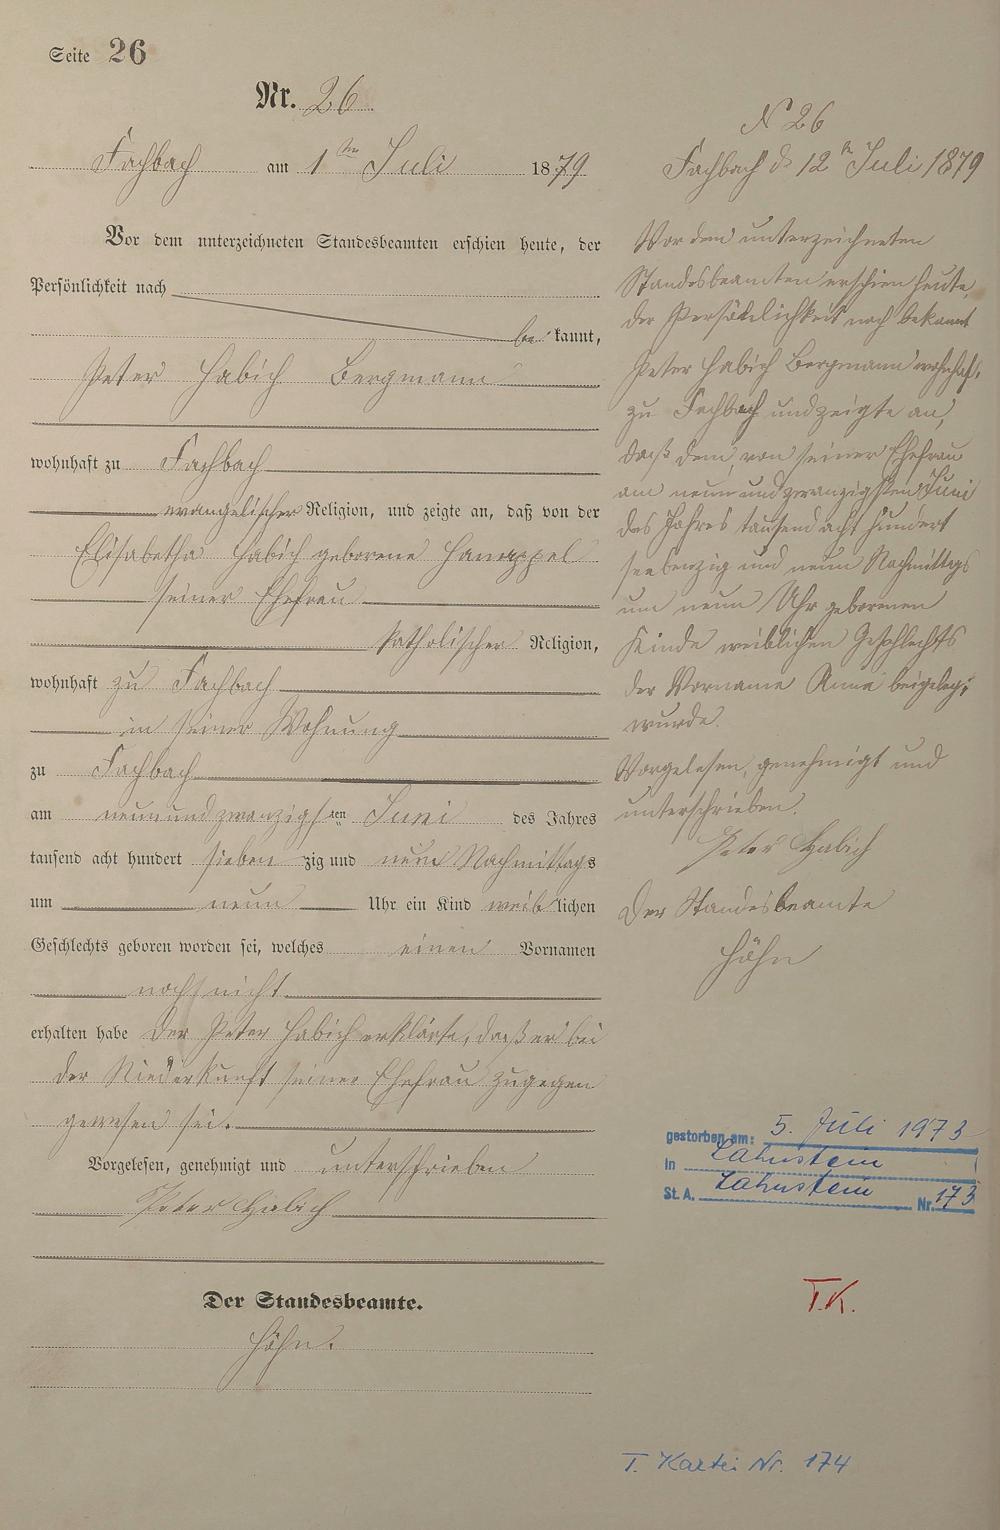 Seite 26
Nr. 26
Fachbach am 1ten Juli 1879
Vor dem unterzeichneten Standesbeamten erschien heute, der
Persönlichkeit nach
be kannt,
Peter Habich Bergmann
wohnhaft zu Fachbach
evangelischer Religion, und zeigte an, daß von der
Elisabetha Habich geborene
seiner Ehefrau
katholischer Religion,
wohnhaft zu Fachbach
in seiner Wohnung
zu Fachbach
am neunundzwanzigsten Juni des Jahres
tausend acht hundert sieben zig und neun Nachmittags
um neun Uhr ein Kind weiblichen
Geschlechts geboren worden sei, welches einen Vornamen
noch nicht
erhalten habe Der Peter Habich erklärte, daß er bei
der Niederkunft seiner Ehefrau zugegen
gewesen sei.
Vorgelesen, genehmigt und unterschrieben
Peter Habich
Der Standesbeamte.
Höhn.
N 26
Fachbach d. 12ten Juli 1879
Vor dem unterzeichneten
Standesbeamten erschien heute,
der Persönlichkeit nach bekannt
Peter Habich Bergmann wohnhaft
zu Fachbach und zeigte an,
daß dem, von seiner Ehefrau
am neunundzwanzigsten Juni
des Jahres tausend acht hundert
siebenzig und neun Nachmittags
um neun Uhr geborenen
Kinde weiblichen Geschlechts
der Vorname Anna beigelegt
wurde.
Vorgelesen, genehmigt und
unterschrieben.
Peter Habich
Der Standesbeamte
Höhn
gestorben am: 5. Juli 1973
in Lahnstein
St. A. Lahnstein Nr. 173
T.K.
T. Kartei Nr. 174